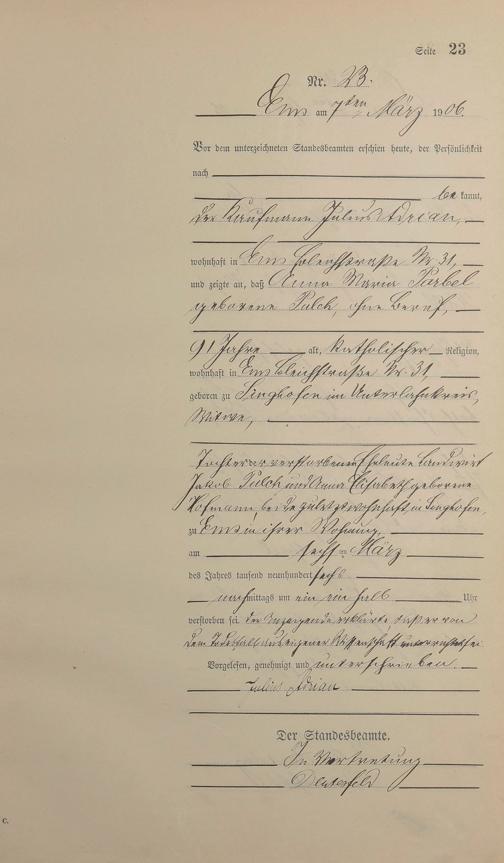 Seite 23
Nr. 23.
Ems am 7ten März 1906.
Vor dem unterzeichneten Standesbeamten erschien heute, der Persönlichkeit
nach
bekannt,
der Kaufmann Julius Adrian,
wohnhaft in Ems Bleichstraße Nr 31,
und zeigte an, daß Anna Maria
geborene Pulch, ohne Beruf,
91 Jahre alt, katholischer Religion,
wohnhaft in Ems Bleichstraße Nr 31
geboren zu Singhofen im Unterlahnkreis,
Witwe,
Tochter der verstorbenen Eheleute Landwirt
Jakob Pulch und Anna Elisabeth geborene
Hofmann, beide zuletzt wohnhaft in Singhofen,
zu Ems in ihrer Wohnung,
am sechsten März
des Jahres tausend neunhundert sechs
nachmittags um ein ein halb Uhr
verstorben sei. Der Anzeigende erklärte, daß er von
dem Todesfall aus eigener Wissenschaft unterrichtet sei.
Vorgelesen, genehmigt und unterschrieben.
Julius Adrian
Der Standesbeamte.
In Vertretung
c.